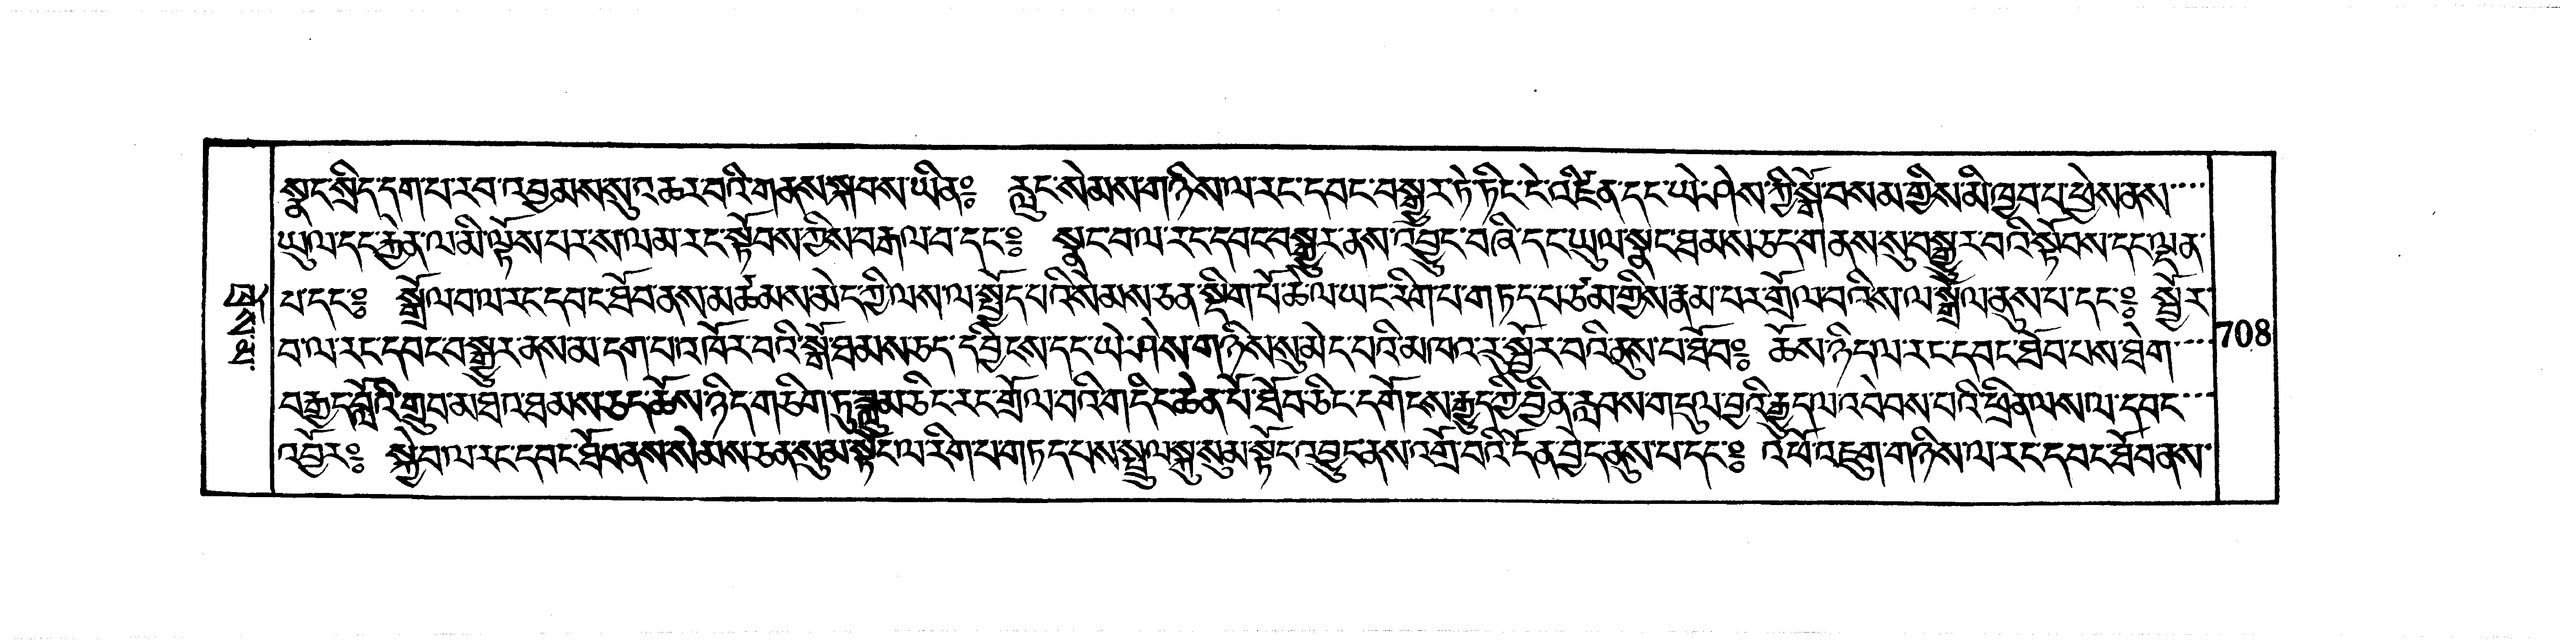 སྣང་སྲིད་དག་པ་རབ་འབྱམས་སུ་འཆར་བའི་གནས་སྐབས་ཡིན༔ རླུང་སེམས་གཉིས་ལ་རང་དབང་བསྒྱུར་ཏེ་ཏིང་ངེ་འཛིན་དང་ཡེ་ཤེས་ཀྱི་སྒོ་བསམ་གྱིས་མི་ཁྱབ་པ་ཕྱེས་ནས····
ཡུལ་དང་རྐྱེན་ལ་མི་ལྟོས་པར་ས་ལམ་རང་སྟོབས་ཀྱིས་བརྒལ་བ་དང་༔ སྣང་བ་ལ་རང་དབང་བསྒྱུར་ནས་འབྱུང་བཞི་དང་ཡུལ་སྣང་ཐམས་ཅད་གནས་སུ་བསྒྱུར་བའི་སྟོབས་དང་ལྡན་
པ་དང་༔ སྒྲོལ་བ་ལ་རང་དབང་ཐོབ་ནས་མཚམས་མེད་ཀྱི་ལས་ལ་སྤྱོད་པའི་སེམས་ཅན་སྡིག་པོ་ཆེ་ལ་ཡང་རིག་པ་གཏད་པ་ཙམ་གྱིས་རྣམ་པར་གྲོལ་བའི་ས་ལ་སྒྲོལ་ནུས་པ་དང་༔ སྦྱོར་
བ་ལ་རང་དབང་བསྒྱུར་ནས་མ་དག་པ་འཁོར་བའི་སྒོ་ཐམས་ཅད་དབྱིངས་དང་ཡེ་ཤེས་གཉིས་སུ་མེད་པའི་མཁའ་རུ་སྦྱོར་བའི་ནུས་པ་ཐོབ༔ ཆོས་ཉིད་ལ་རང་དབང་ཐོབ་པས་ཐེག····
བརྒྱད་བློའི་གྲུབ་མཐའ་ཐམས་ཅད་ཆོས་ཉིད་གཅིག་ཏུ་རླུམ་ཅིང་རང་གྲོལ་བའི་གདིང་ཆེན་པོ་ཐོབ་ཅིང་དགོངས་རྒྱུད་ཀྱི་བྱིན་རླབས་གདུལ་བྱའི་རྒྱུད་ལ་འབེབས་པའི་ཕྲིན་ལས་ལ་དབང····
འབྱོར༔ སྐྱེ་བ་ལ་རང་དབང་ཐོབ་ནས་སེམས་ཅན་སུམ་སྟོང་ལ་རིག་པ་གཏད་པས་སྤྲུལ་སྐུ་སུམ་སྟོང་འབྱུང་ནས་འགྲོ་བའི་དོན་བྱེད་ནུས་པ་དང་༔ འཕོ་འཇུག་གཉིས་ལ་རང་དབང་ཐོབ་ནས་
708